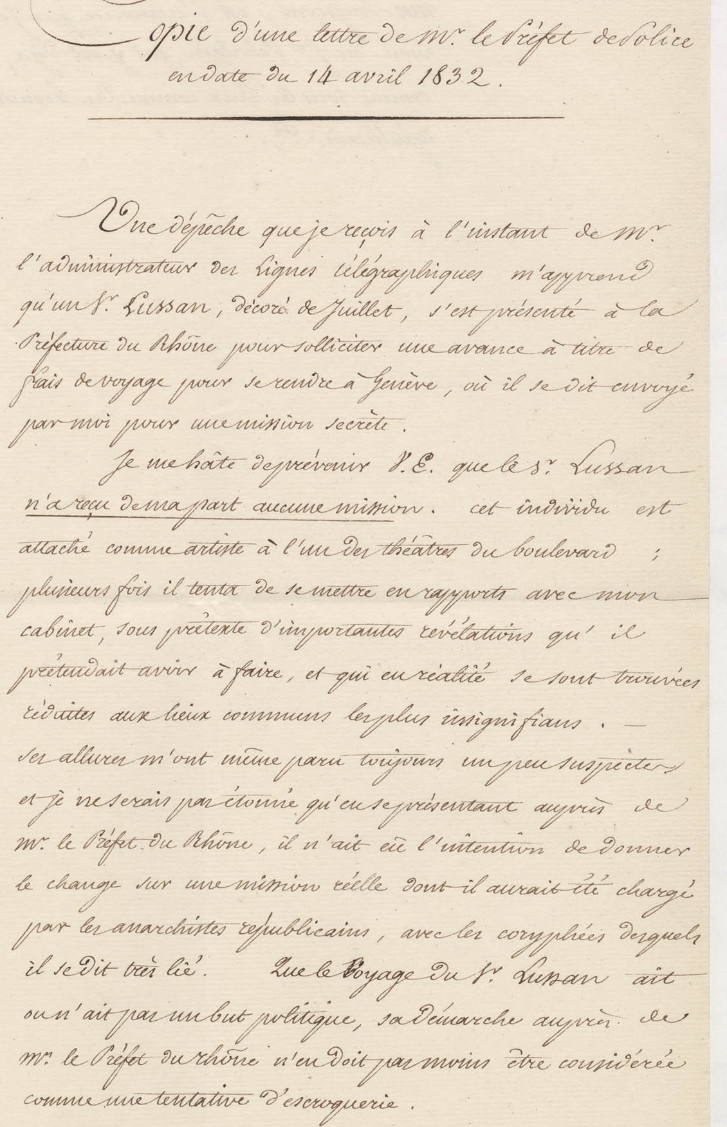 Copie d'une lettre de Mr. le Préfet de Police
en date du 14 avril 1832.
Une dépêche que je reçois à l'instant de Mr.
l'administrateur des Lignes télégraphiques m'apprend
qu'un Sr. Lussan, décoré de Juillet, s'est présenté à la
Préfecture du Rhône pour solliciter une avance à titre de
frais de voyage pour se rendre à Genève, où il se dit envoyé
par moi pour une mission secrète.
Je me hâte de prévenir V. E. que le Sr. Lussan
n'a reçu de ma part aucune mission. cet individu est
attaché comme artiste à l'un des théâtres du boulevard ;
plusieurs fois il tenta de se mettre en rapports avec mon
cabinet, sous prétexte d'importantes révélations qu' il
prétendait avoir à faire, et qui en réalité se sont trouvées
réduites aux lieux communs les plus insignifians. —
ses allures m'ont même paru toujours un peu suspectes,
et je ne serais pas étonné qu'en se présentant auprès de
Mr. le Préfet du Rhône, il n'ait eû l'intention de donner
le change sur une mission réelle dont il aurait été chargé
par les anarchistes républicains, avec les coryphées desquels
il se dit très lié. Que le Voyage du Sr. Lussan ait
ou n'ait pas un but politique, sa démarche auprès de
Mr. le Préfet du rhône n'en doit pas moins être considérée
comme une tentative d'escroquerie.